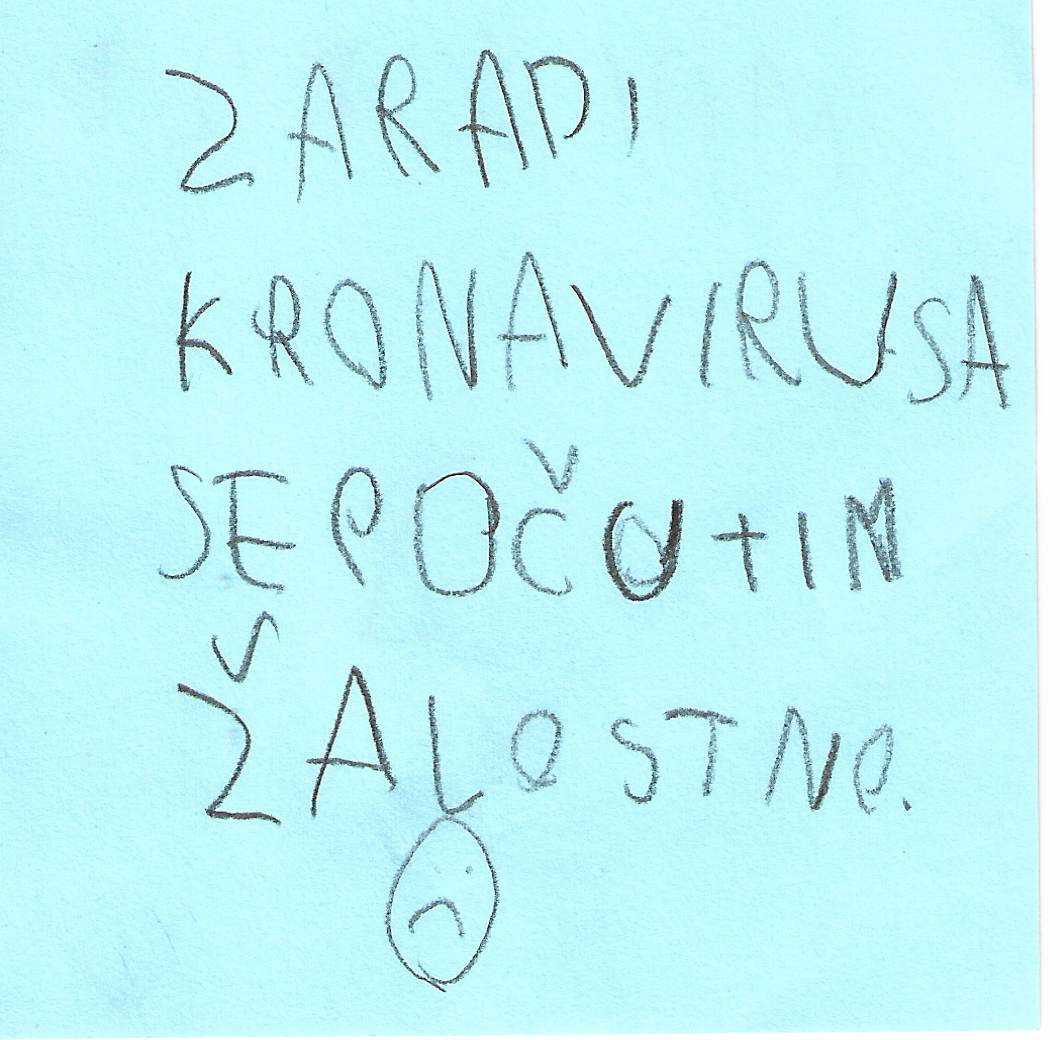 ZARADI
KRONAVIRUSA
SE POČUTIM
ŽALOSTNO.